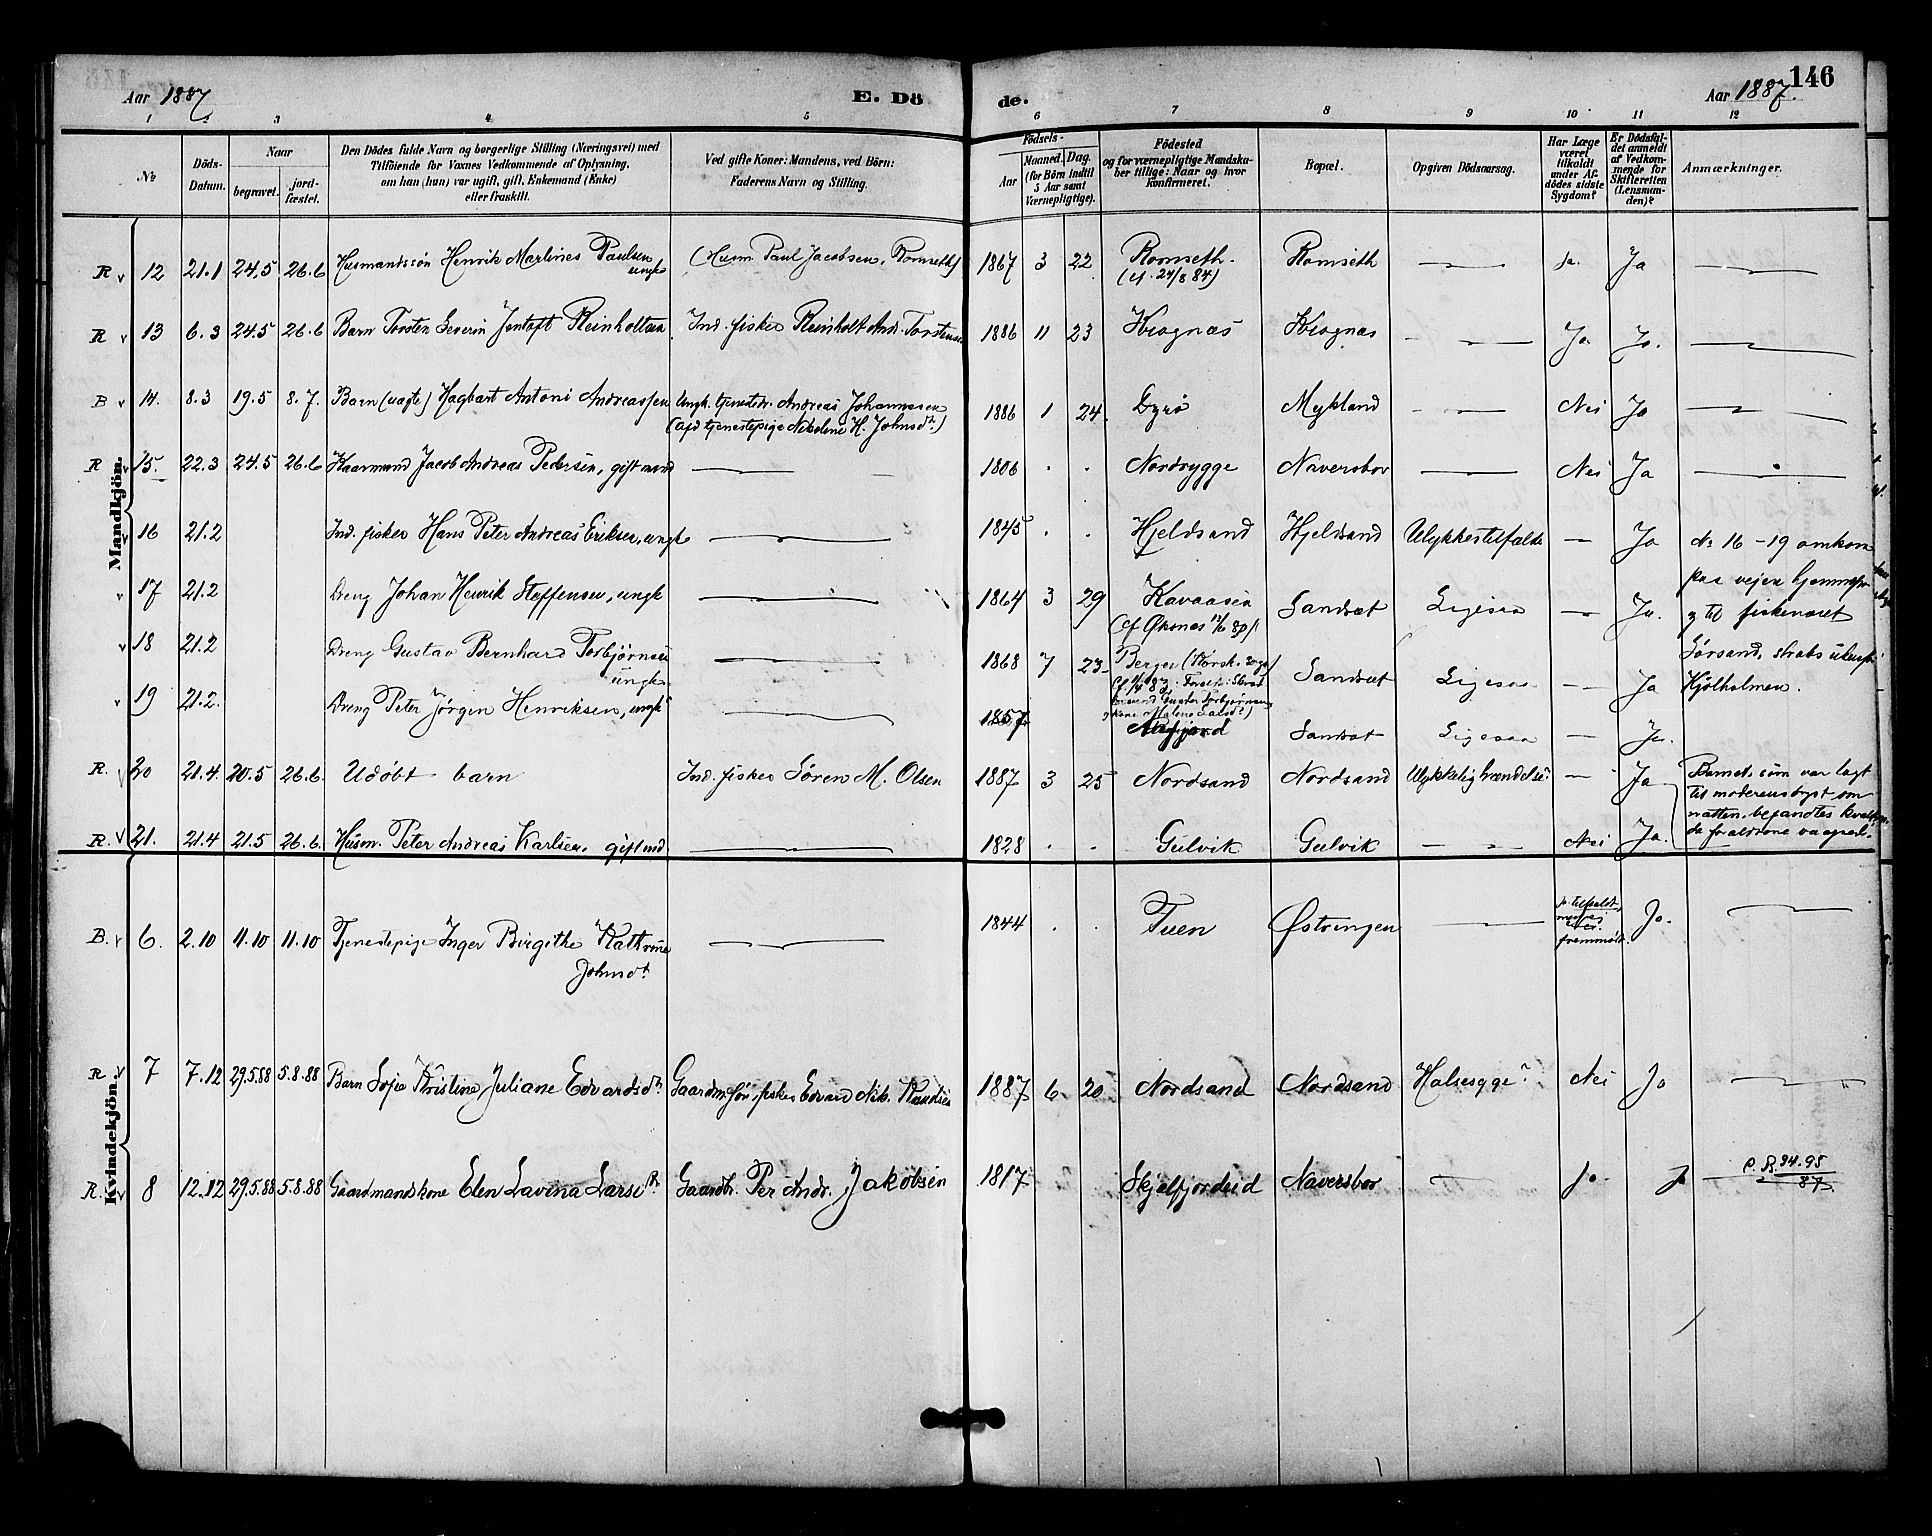 146
Aar 1887
E. Döde.
Aar 1887.
1 2 3 4 5 6 7 8 9 10 11 12
No
Döds-Datum.
Naar
begravet.
jordfæstet.
Den Dödes fulde Navn og borgerlige Stilling (Næringsvei) med
Tilföiende for Voxnes Vedkommende af Oplysning,
om han (hun) var ugift, gift, Enkemand (Enke)
eller fraskilt.
Ved gifte Koner: Mandens, ved Börn:
Faderens Navn og Stilling.
Födsels-
Aar
Maaned. Dag.
(for Börn indtil
5 Aar samt
Værnepligtige).
Födested
og for værnepligtige Mandska-
ber tillige: Naar og hvor
konfirmeret.
Bopæl.
Opgiven Dödsaarsag.
Har Læge
været
tilkaldt
under Af-
dödes sidste
Sygdom?
Er Dödsfal-
det anmeldt
af Vedkom-
mende for
Skifteretten
(Lensman-
den)?
Anmærkninger.
Mandkjön.
R 12 21.1 24.5 26.6 Husmandssön Henrik Martines Paulsen ungk (Husm Paul Jacobsen, Romseth) 1867 3 22 Romseth. (cf. 24/8 84) Romseth Ja. Ja
R 13 6.3 24.5 26.6 Barn Torsten Severin Jentoft Reinholtsen Ind. fisker Reinholt And. Torstensen 1886 11 23 Krognæs Krognæs Ja Ja.
B 14. 8.3 19.5 8.7. Barn (uægte) Hagbart Antoni Andreassen Ungk. tjenestedr. Andreas Johannessen 1886 1 24. Dyrö Mykland Nei Ja
(Afd tjenestepige Nikoline H. Johnsdr.)
R 15. 22.3 24.5 26.6 Kaarmand Jacob Andreas Pedersen, gift mand 1806 . . Nordrygge Naversbor Nei Ja
16 21.2 Ind. fisker Hans Peter Andreas Eriksen, ungk 1845 . . Hjeldsand Hjeldsand Ulykkestilfælde Ja No 16 - 19 omkom
17 21.2 Dreng Johan Henrik Steffensen, ungk 1864 3 29 Kavaasen Sandsæt Ligesaa Ja. paa vejen hjemmefra
og til fiskeværet
18 21.2 Dreng Gustav Bernhard Torbjørnsen ungk. 1868 7 23 Bergen Sandsæt Ligesaa Ja Sörsand, strabs udenfor
Kjölholmen.
19 21.2. Dreng Peter Jørgen Henriksen, ungk 1857 Sandsæt Ligesaa Ja.
R. 20 21.4. 20.5 26.6. Udøbt barn Ind. fisker Søren M. Olsen 1887 3 25 Nordsand Nordsand Ulykkelig hændelse. Ja Barnet, som var lagt
til moderens bryst om
natten, befandtes kvalt,
da forældrene vaagned.
R. 21. 21.4 21.5 26.6. Husm. Peter Andreas Karlsen. gift md 1828 . . Gulvik Gulvik Nei Ja.
Kvindekjön.
B. 6. 2.10 11.10 11.10 Tjenestepige Inger Birgithe Kathrine Johnsdr. 1844 . . Tuen Østringen Ja. tilkaldt, fremmödt. Ja.
R 7 7.12 29.5.88 5.8.88 Barn Sofie Kristine Juliane Edvardsdr. Gaardm.sön, fisker Edvard Nik. Knudsen 1887 6 20 Nordsand Nordsand Halsesyge? Nei Ja
R. 8 12.12 29.5.88 5.8.88 Gaardmandskone Elen Lavina Larsdr. Gaardbr. Per Andr. Jakobsen 1817 Skjelfjordeid Naversbor Ja. Ja